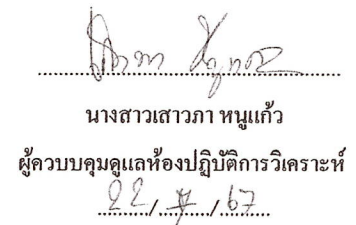 นางสาวเสาวภา หนูแก้ว
ผู้ควบบคุมดูแลห้องปฏิบัติการวิเคราะห์
22/7/67